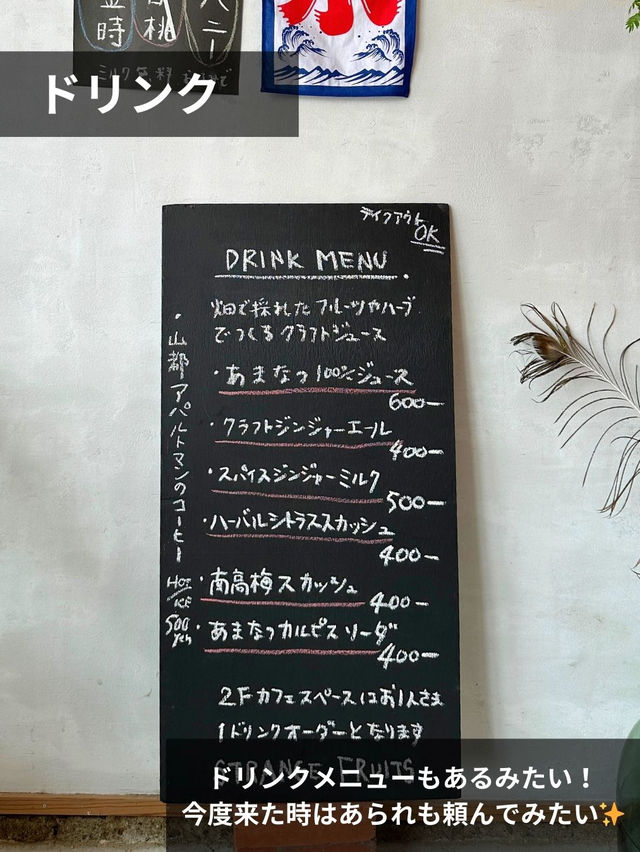 ドリンク
ミルク無料
テイクアウト
OK
DRINK MENU
畑で採れたフルーツやハーブ
でつくるクラフトジュース
・あまなつ100%ジュース
600-
・クラフトジンジャーエール
400-
・スパイスジンジャーミルク
500-
・ハーバルシトラススカッシュ
400-
・南高梅スカッシュ
400-
・あまなつカルピスソーダ
400-
・山都アペルトマンのコーヒー
HOT/ICE
500yen
2Fカフェスペースはお1人さま
1ドリンクオーダーとなります
STRANGE FRUITS
ドリンクメニューもあるみたい！
今度来た時はあられも頼んでみたい✨